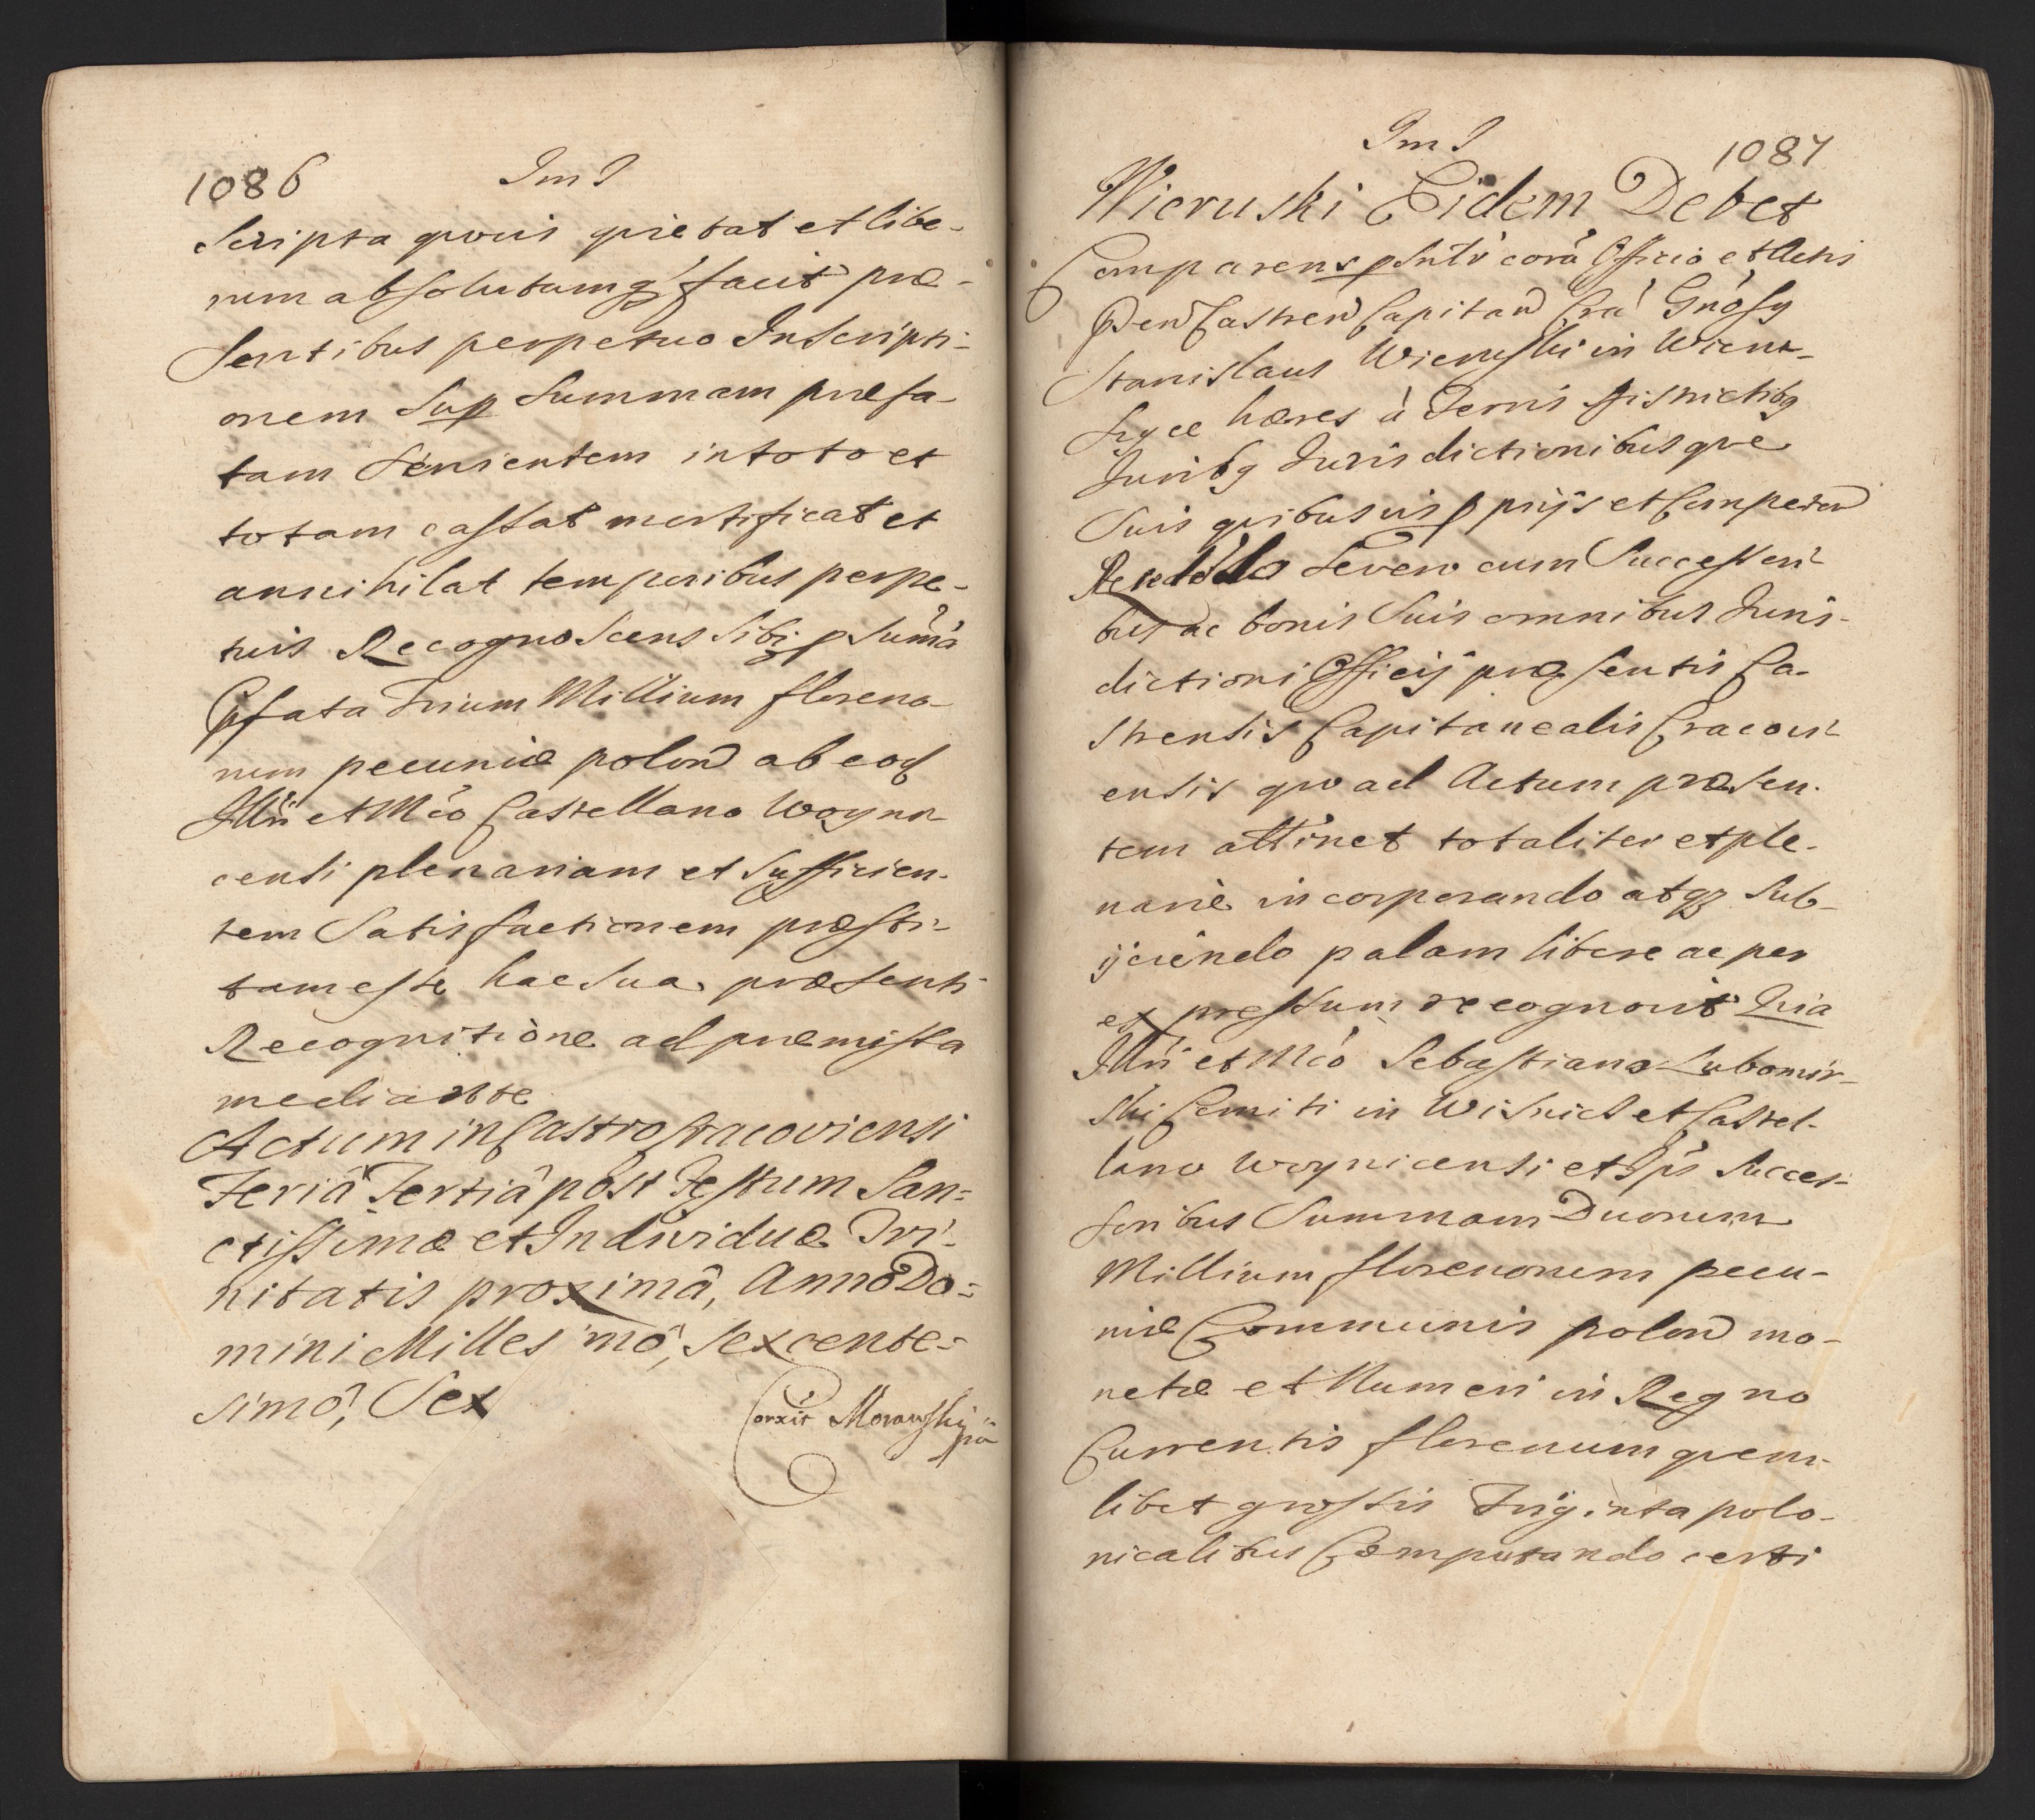 1086
Im J
scripta prius quietat et libe-
rum absolutumq facit præ-
sentibus perpetuo Inscripti-
onem sup summam præfa-
tam servientem in toto et
totam cassat mortificat et
annihilat temporibus perpe-
tuis Recognoscens sibi p sum̄a
Pfata Trium Millium floreno-
rum pecuniæ polon ab eod
Illri et Mco Castellano Woyni-
censi plenariam et sufficien-
tem Satisfactionem præsti-
tam esse hac sua præsenti
Recognitione ad præmissa
mediante
Actum in Castro Cracoviensi
Feriâ Tertiâ post Festum San=
ctissimæ et Individuæ Tri-
nitatis proximâ, Anno Do=
mini Millesimô, Sexcente=
simô, Sex
Corxit Morawski
mp
Im J
1087
Wieruski Eidem Debet
Comparens psntr corã Officio et Actis
Pen Castren Capitan Cra Gnosq
Stanislaus Wieruski in Wieru-
szyce hæres à Terris Districtibq
Juribq Jurisdictionibusque
Suis quibusvis ppriis et Competen
Recedendo Severo cum Successori-
bus ac bonis Suis omnibus Juris-
dictioni Officij præsentis Ca-
strensis Capitanealis Cracovi-
ensis quo ad Actum præsen-
tem attinet totaliter et ple-
narie incorporando atqz Sub-
ijciendo palam libere ac per
expressum recognovit Quia
Illri et Mco Sebastiano Lubomir-
ski Comiti in Wisnicz et Castel-
lano Woynicensi et Ips Succes-
soribus Summam Duorum
Millium florenorum pecu-
niæ Communis polon mo-
netæ et Numeri in Regno
Currentis florenum quem-
libet grossis Triginta polo-
nicalibus Computando certi